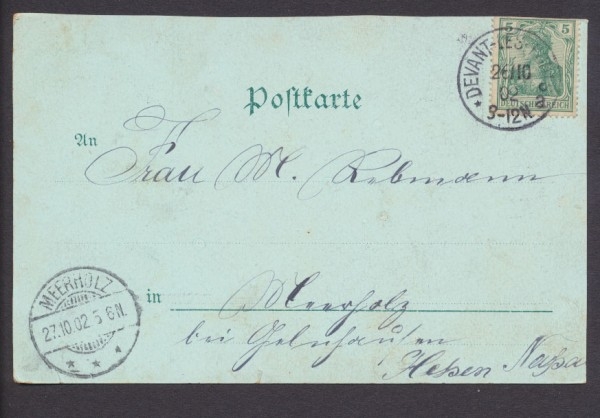 5 5
DEVANT-LES-
26/10
02
9-12N
a
DEUTSCHES REICH
Postkarte
An
Frau M. Rebmann
MEERHOLZ
27.10.02 5-6N.
in Meerholz
bei Gelnhausen
Hessen Nassa